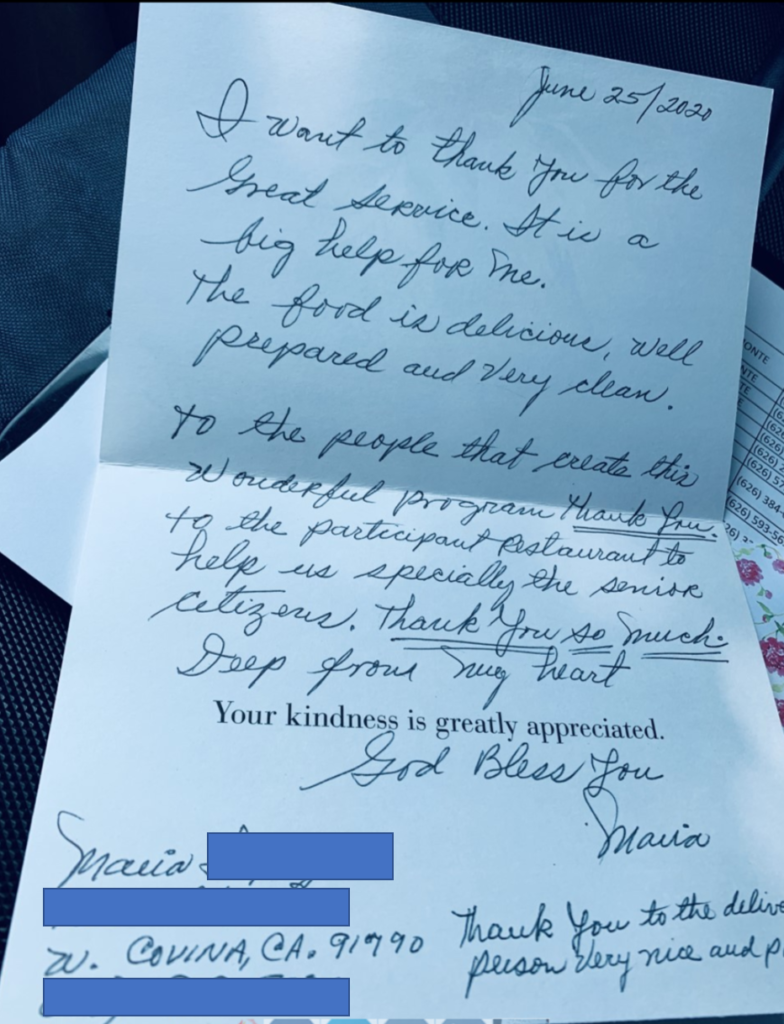 June 25/2020
I want to thank You for the
Great Service. It is a
big help for me.
The food is delicious, well
prepared and Very clean.
to the people that create this
Wonderful program thank You.
to the participant Restaurant to
help us specially the senior
citizens. Thank You so much.
Deep from my heart
Your kindness is greatly appreciated.
God Bless You
Maria
Maria
W. COVINA, CA. 91790
Thank You to the
person Very nice and
ONTE
NTE
TE
(626)
(626)
(626) 384-
(626) 593-56